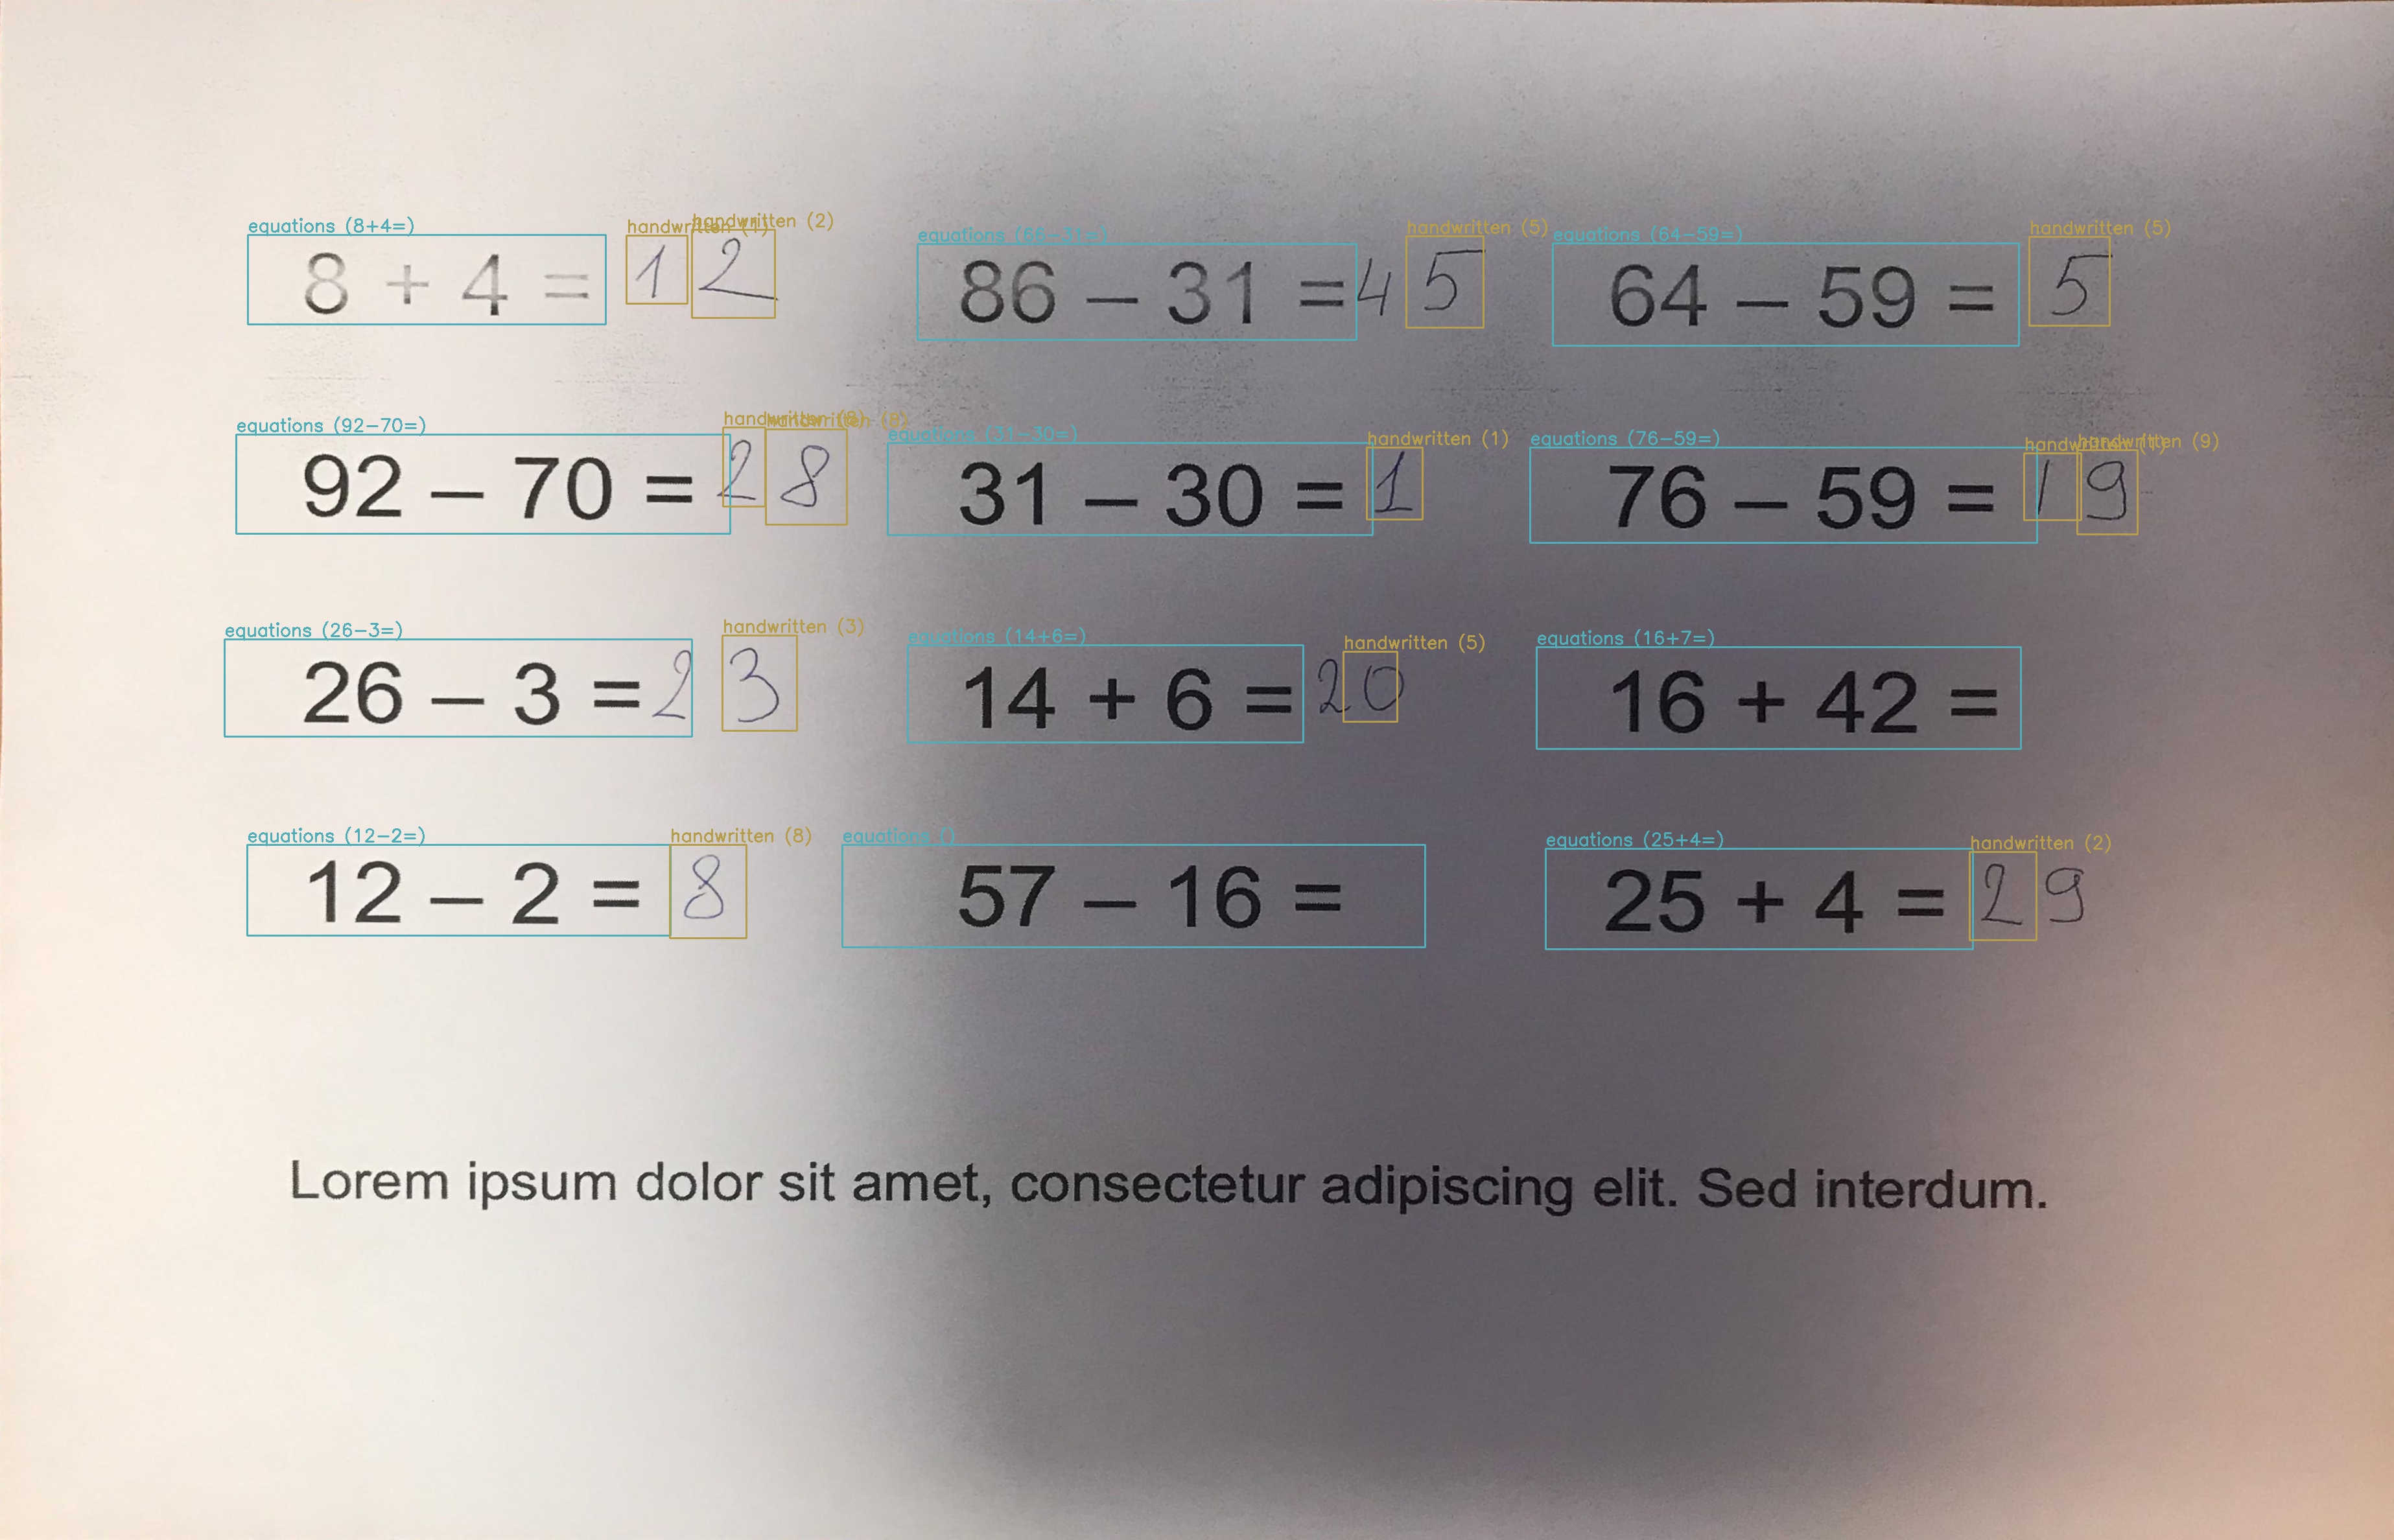 equations (8+4=) handwritten (1) handwritten (2) equations (66-31=) handwritten (5) equations (64-59=) handwritten (5)
8 + 4 = 12 86 – 31 = 45 64 – 59 = 5
equations (92-70=) handwritten handwritten equations (31-30=) handwritten (1) equations (76-59=) handwritten (1) handwritten (9)
92 – 70 = 28 31 – 30 = 1 76 – 59 = 19
equations (26-3=) handwritten (3) equations (14+6=) handwritten (5) equations (16+7=)
26 – 3 = 23 14 + 6 = 20 16 + 42 =
equations (12-2=) handwritten (8) equations () equations (25+4=) handwritten (2)
12 – 2 = 8 57 – 16 = 25 + 4 = 29
Lorem ipsum dolor sit amet, consectetur adipiscing elit. Sed interdum.